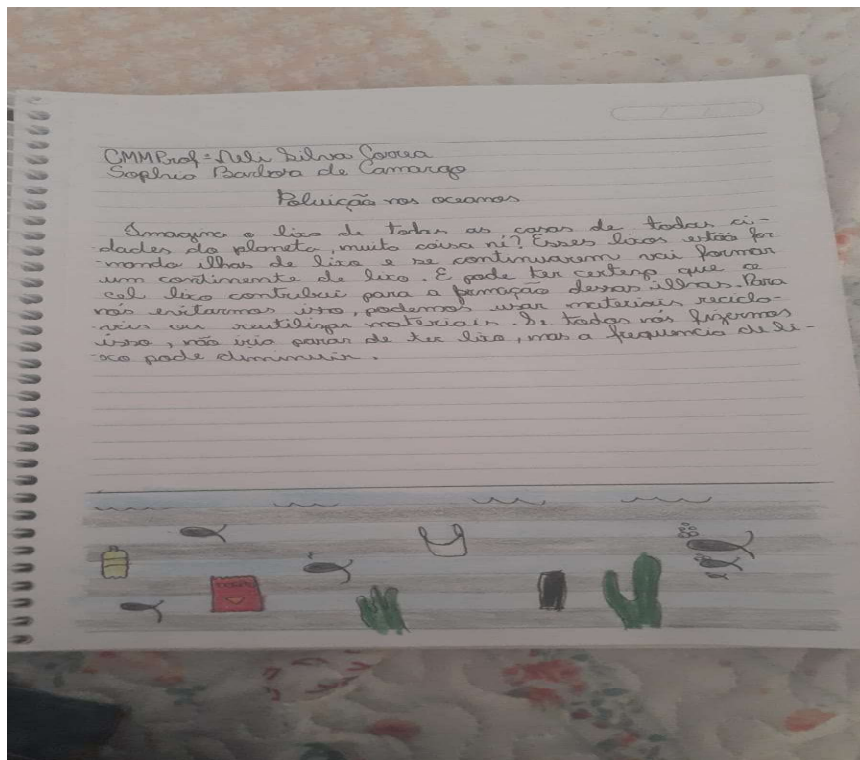 CMMProf= Neli Silva Correa
Sophia Barbosa de Camargo
Poluição nos oceanos
Imagina o lixo de todas as casas de todas ci-
dades do planeta, muita coisa né? Esses lixos estão for
mando ilhas de lixo e se continuarem vai formar
um continente de lixo. E pode ter certeza que o
lixo contribui para a formação dessas ilhas. Para
nós evitarmos isso, podemos usar materiais reciclá-
veis ou reutilizar materiais. Se todos nós fizermos
isso, não iria parar de ter lixo, mas a frequencia de li-
xo pode diminuir.